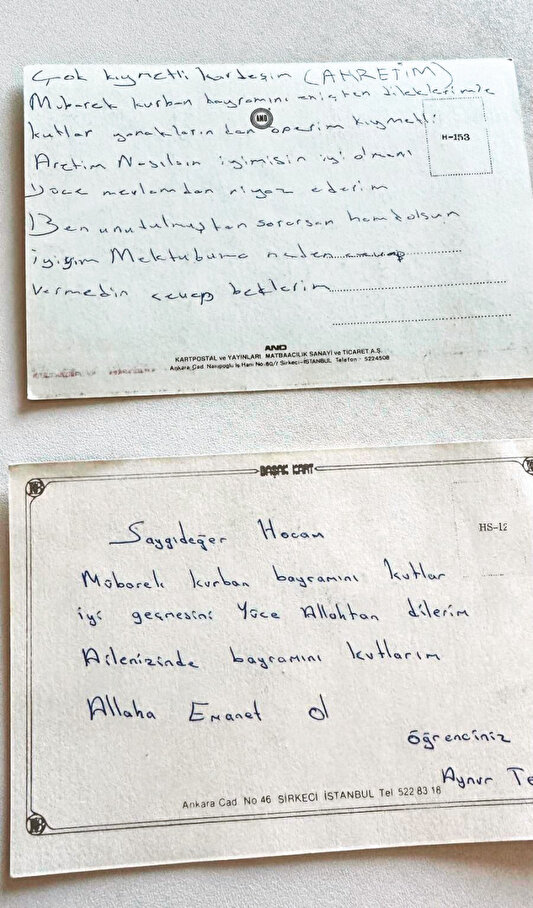 Çok kıymetli kardeşim (AHRETİM)
Mübarek kurban bayramını en içten dileklerimle
AND
kutlar yanaklarından öperim kıymetli
H-153
Ahretim Nasılsın iyimisin iyi olmanı
Yüce mevlamdan niyaz ederim
Ben unutulmuştan sorarsan hamdolsun
iyiyim Mektubuma neden cevap
vermedin cevap beklerim
AND
KARTPOSTAL ve YAYINLARI MATBAACILIK SANAYİ ve TİCARET A.Ş.
Ankara Cad. Narlıpoğlu İş Hanı No:80/7 Sirkeci-İSTANBUL Telefon: 5224508
BAŞAK KART
HS-12
Saygıdeğer Hocam
Mübarek kurban bayramını kutlar
iyi geçmesini Yüce Allahtan dilerim
Ailenizinde bayramını kutlarım
Allaha Emanet ol
öğrenciniz
Aynur Te
Ankara Cad. No 46 SİRKECİ İSTANBUL Tel 522 83 18